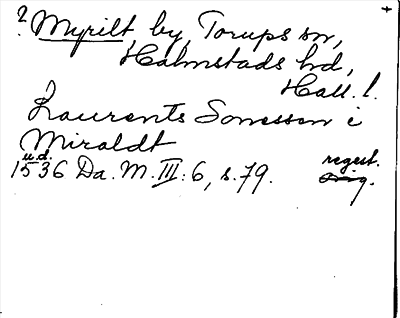 ? Myrilt by, Torups sn,
Halmstads hd,
Hall. l.
Laurents Sonesson i
Miraldt
u.d.
1536 Da. M. III: 6, s. 79. regest.
orig.